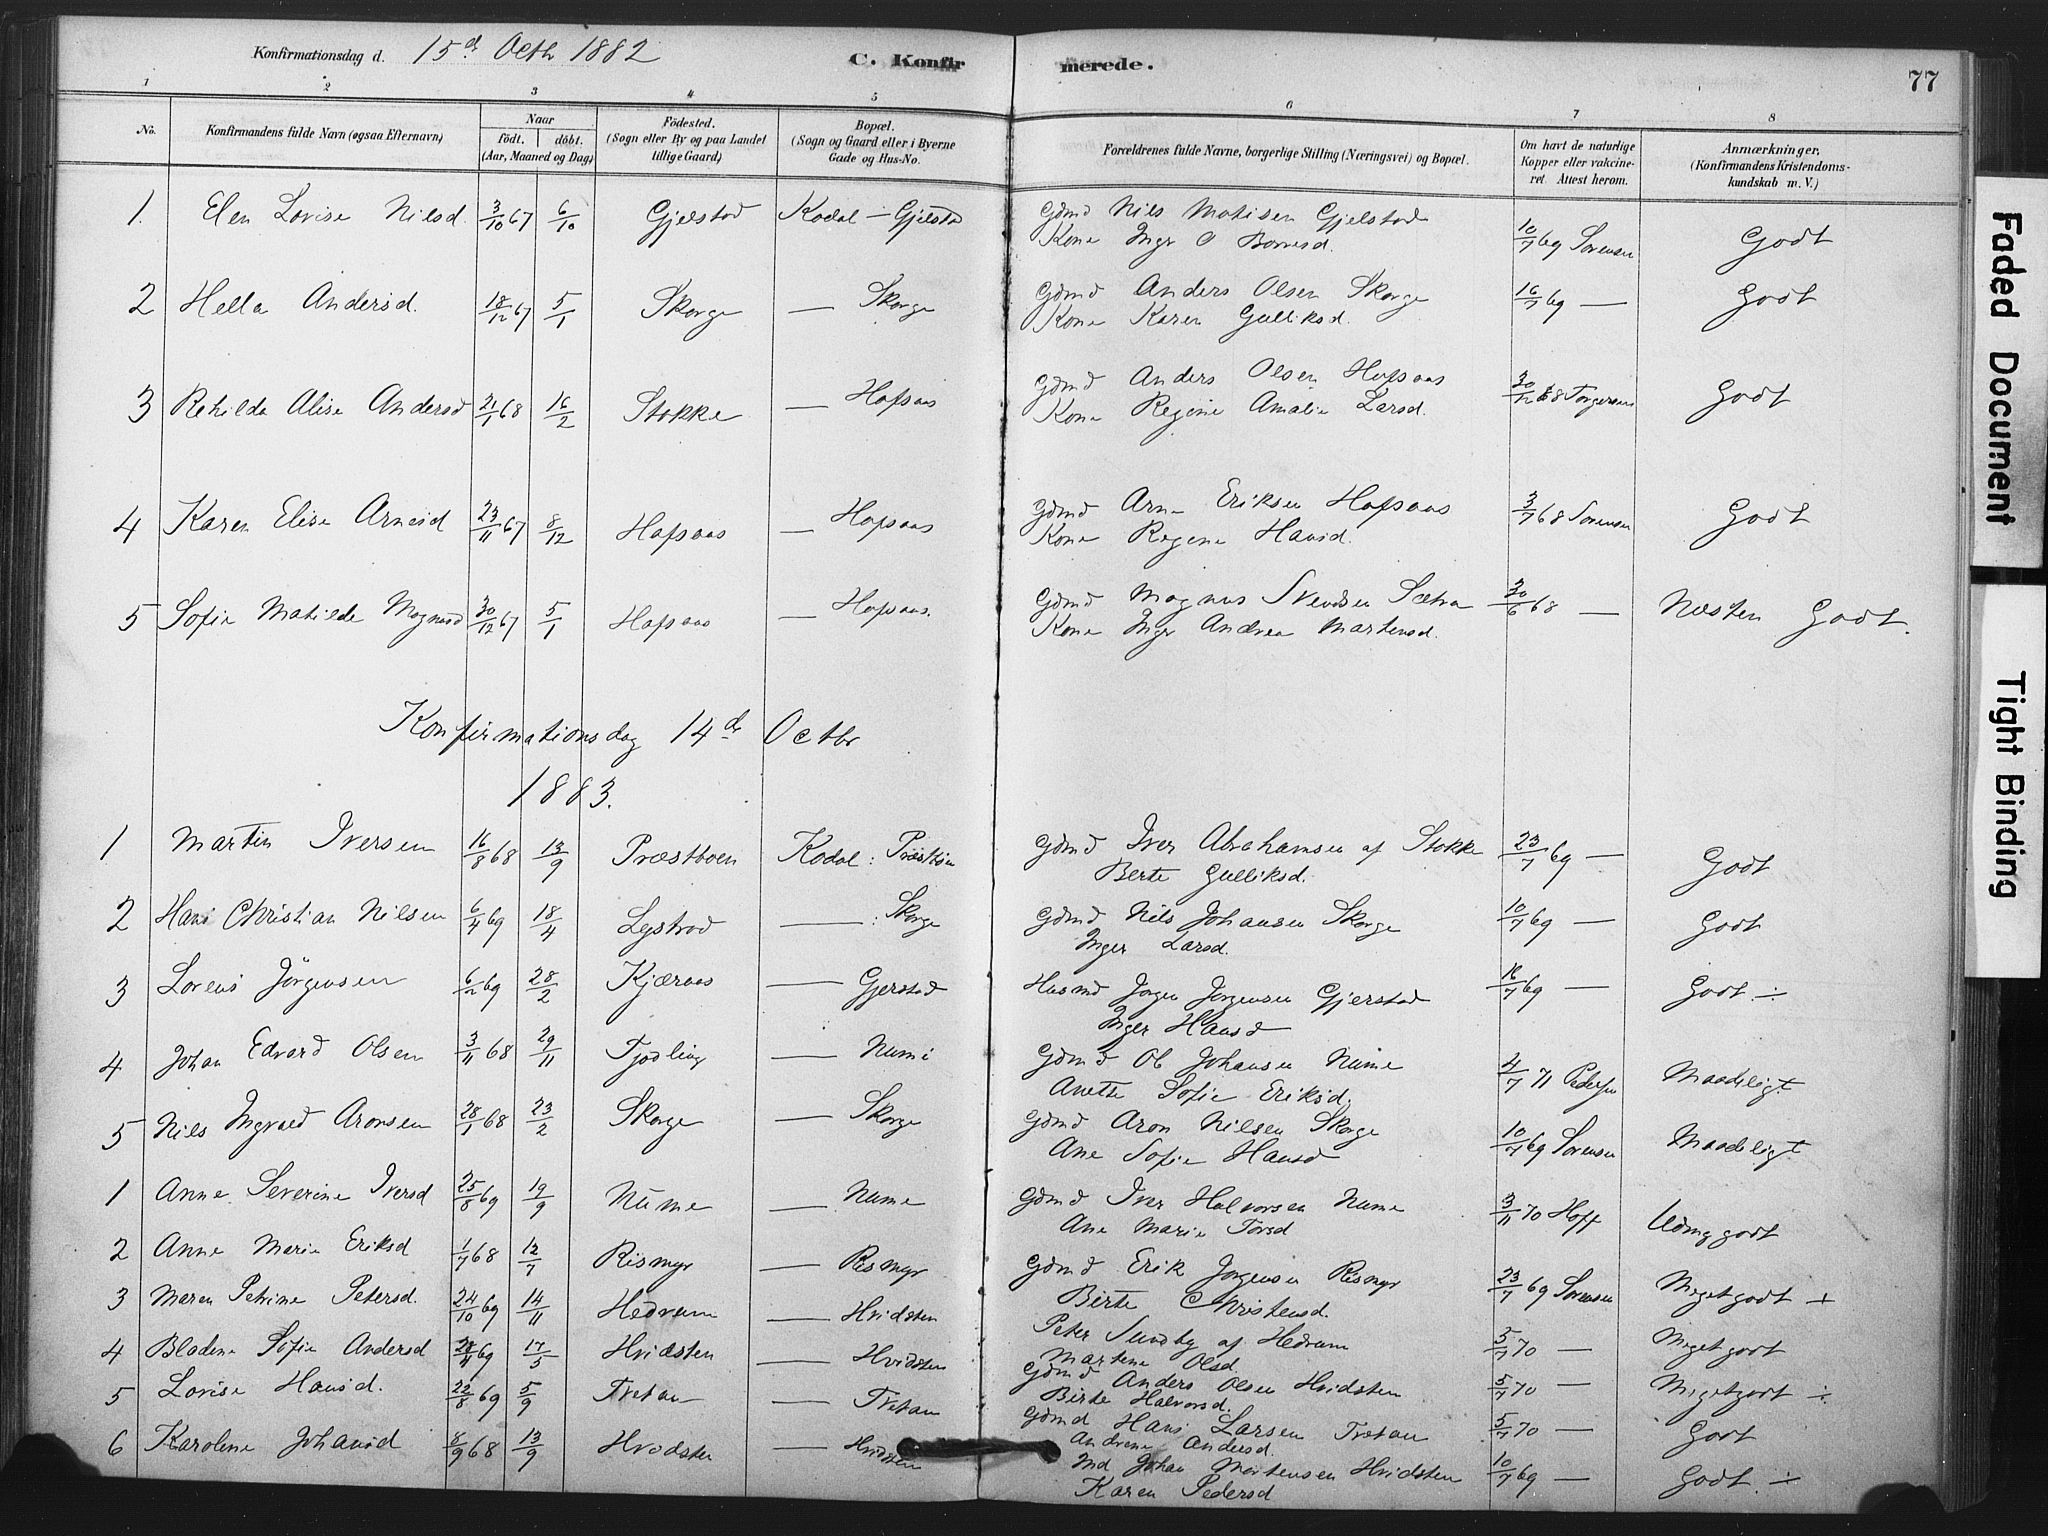 Konfirmationsdag d. 15d Octb 1882 C. Konfirmerede. 77
1 2 3 4 5 6 7 8
No. Konfirmandens fulde Navn (ogsaa Efternavn) Naar födt. döbt. (Aar, Maaned og Dag) Födested. (Sogn eller By og paa Landet tillige Gaard) Bopæl. (Sogn og Gaard eller i Byerne Gade og Hus-No. Forældrenes fulde Navne, borgerlige Stilling (Næringsvei) og Bopæl. Om havt de naturlige Kopper eller vakcineret. Attest herom. Anmærkninger. (Konfirmandens Kristendomskundskab m. V.)
1. Elen Lovise Nilsd. 3/10 67 6/10 Gjelstad Kodal – Gjelstd Gdmd Nils Matisen Gjelstad 10/7 69 Sorensen Godt
Kone Ingr O
2 Hella Andersd. 18/12 67 5/1 Skorge — Skorge Gdmd Anders Olsen Skorge 16/7 69 — Godt
Kone Karen Gulliksd.
3 Alise Andersd 21/1 68 16/2 Stokke — Hafsaas Gdmd Anders Olsen Hafsaas 30/12 68 Torgersen Godt
Kone Regine Amalie Larsd.
4 Karen Elise Arnesd 23/11 67 8/12 Hafsaas — Hafsaas Gdmd Arne Eriksen Hafsaas 3/7 68 Sorensen Godt
Kone Regine Hansd.
5 Sofie Matilde Magnusd 30/12 67 5/1 Hafsaas — Hafsaas. Gdmd Magnus Svendsen Sætra 30/6 68 — Næsten Godt.
Kone Ingr Andrea Martensd.
Konfirmationsdag 14de Octbr
1883.
1 Martin Iversen 16/8 68 13/9 Præstboen Kodal: Gdmd Iver Abrahamsen af Stokke 23/7 69 — Godt
Berte Gulliksd.
2 Hans Christian Nilsen 6/4 69 18/4 Lystad — : Skorge Gdmd Nils Johansen Skorge 10/7 69 — Godt
Inger Larsd.
3 Lorens Jörgensen 6/2 69 28/2 Kjæraas — Gjerstad Husmd Jorgen Jorgensen Gjerstad 16/7 69 — Godt ÷
Inger Hansd
4 Johan Edvard Olsen 3/11 68 29/11 Tjodling — Nume Gdmd Ol Johansen Nume 4/7 71 Pedersen Maadeligt
Anette Sofie Eriksd.
5 Nils Ingvald Aronsen 28/1 68 23/2 Skorge — Skorge Gdmd Aron Nilsen Skorge 10/7 69 Sorensen Maadeligt
Ane Sofie Hansd
1 Anne Severine Iversd 25/8 69 19/9 Nume — Nume Gdmd Iver Halvorsen Nume 3/11 70 Hoff Udmg godt
Ane Marie Torsd
2 Anne Marie Eriksd 1/7 68 12/7 Rismyr — Rismyr Gdmd Erik Jorgensen Rismyr 23/7 69 Sorensen Megetgodt +
Birte Christensd.
3 Maren Petrine Petersd. 24/10 69 14/11 Hedrum — Hvidsten Peter Sundby af Hedrum 5/7 70 — Megetgodt
Martene Olsd
4 Bladine Sofie Andersd 69 17/5 Hvidsten — Hvidsten Gdmd Anders Olsen Hvidsten 5/7 70 — Megetgodt ÷
Birte Halvorsd.
5 Lovise Hansd. 22/8 69 5/9 Tvetan — Tvetan Gdmd Hans Larsen Tvetan 5/7 70 — Godt
Andrine Andersd.
6 Karoline Johansd 8/9 68 13/9 Hvidsten — Hvidsten Johan Mortensen Hvidsten 10/7 69 — Godt ÷
Karen Pedersd
Faded Document
Tight Binding